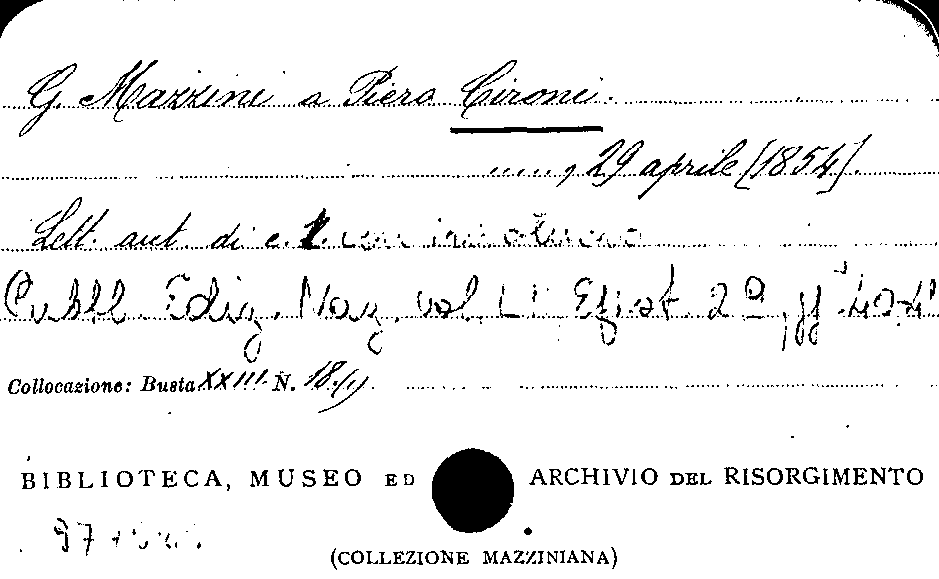 G. Mazzini a Piero Cironi.
....., 29 aprile [1854].
Lett. aut. di c. 1. con
Pubbl. Ediz. Naz. vol. Epist.
Collocazione: Busta XXIII N. 18
BIBLIOTECA, MUSEO ED ARCHIVIO DEL RISORGIMENTO
97
(COLLEZIONE MAZZINIANA)